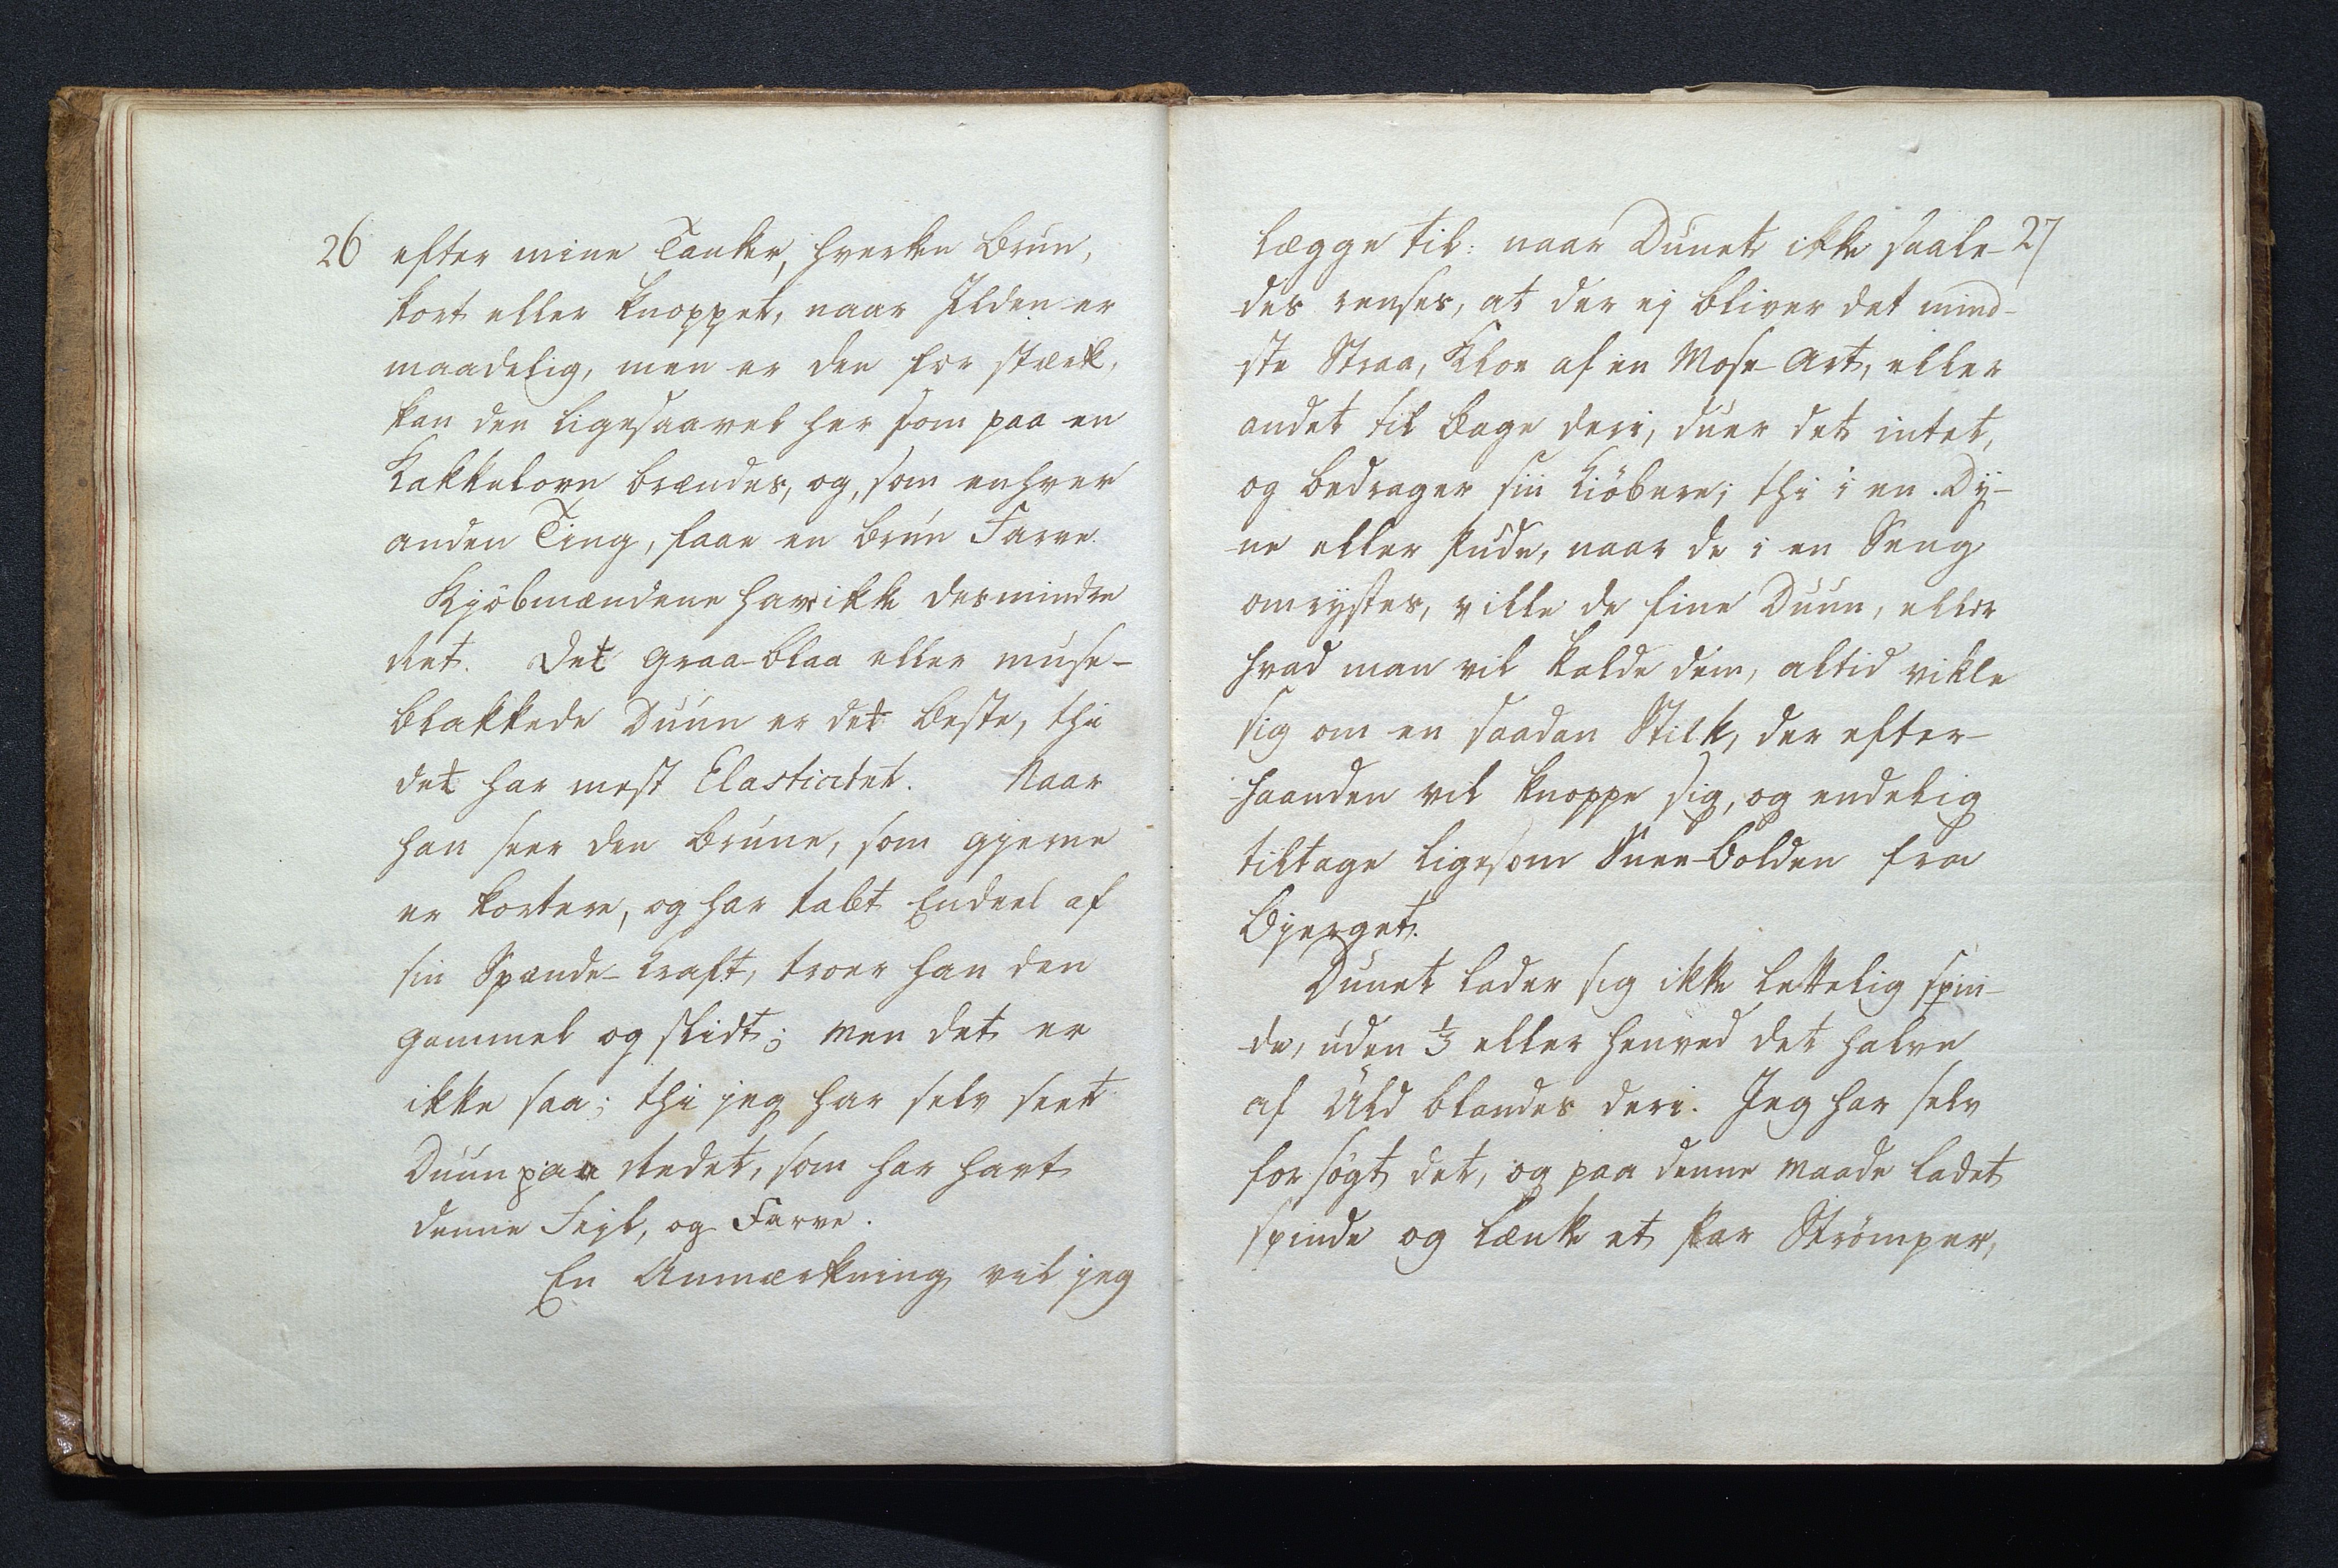 26 efter mine Tanker, hverken brun,
kort eller knoppet, naar Ilden er
maadelig, men er den for stærk,
kan den ligesaavel her som paa en
Kakkelovn brændes, og, som enhver
anden Ting, faae en brun Farve.
Kjöbmændene har ikke desmindre
ret. Det graa-blaa eller muse-
blakkede Duun er det beste, thi
det har mest Elasticitet. Naar
han seer den brune, som gjerne
er kortere, og har tabt Endeel af
sin Spænde-Kraft, troer han den
gammel og slidt; men det er
ikke saa; thi jeg har selv seet
Duun paa Redet, som har havt
denne Fejl, og Farve.
En Anmærkning vil jeg
lægge til: naar Dunet ikke saale- 27
des renses, at der ej bliver det mind-
ste Straa, Kloe af en Mose-Art, eller
andet til bage deri, duer det intet,
og bedrager sin Kiöbere; thi i en Dy-
ne eller Pude, naar de i en Seng
omrystes, ville de fine Duun, eller
hvad man vil kalde dem, altid vikle
sig om en saadan Stilk, der efter-
haanden vil knoppe sig, og endelig
tiltage ligesom Snee-bolden fra
Bjerget.
Dunet lader sig ikke lettelig spin-
de, uden 1/3 eller henved det halve
af Uld blandes deri. Jeg har selv
forsögt det, og paa denne Maade ladet
spinde og lænke et Par Strömper,